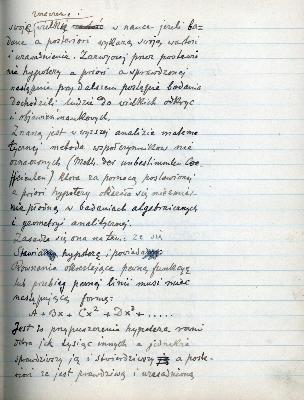 swoją wielką wartość w nauce jeżeli ba-
dane a posteriori wykażą swoją wartość
i uzasadnienie. Zazwyczaj przez postawie
nie hypotezy a priori a sprawdzonej
następnie przy dalszem postępie badania
dochodzili ludzie do wielkich odkryć
i objawień naukowych.
Znaną jest w wyższej analizie matema
tycznej metoda współczynników nie
oznaczonych (Meth. der unbestimmten Coe
fficienten) która za pomocą postawionej
a priori hypotezy okazała się niezmier
nie płodną w badaniach algebraicznych
i geometryi analitycznej.
Zasadza się ona na tem: że się
stawia hypotezę i powiada
równania określające pewną funkcyę
lub przebieg pewnej linii musi mieć
następującą formę:
A + Bx + Cx² + Dx³ + .....
Jest to przypuszczenie hypoteza
dobra jak tysiąc innych a jednakże
sprawdziwszy ją i stwierdziwszy a poste-
riori że jest prawdziwą i uzasadnioną